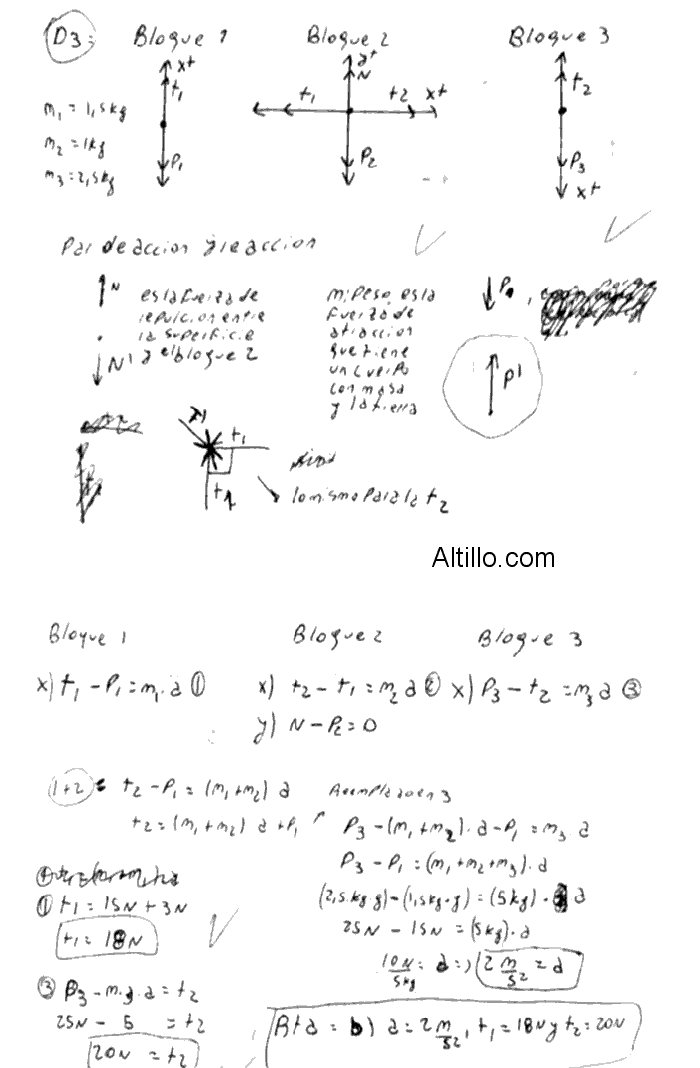 D3: Bloque 1 Bloque 2 Bloque 3
x+ a+ N
t1 t1 t2 x+ t2
m1 = 1,5kg
m2 = 1kg
m3 = 2,5kg
P1 P2 P3
x+
Par de accion y reaccion
N es la fuerza de repulcion entre la superficie a el bloque 2
N'
m: peso, es la fuerza de atraccion que tiene un cuerpo con masa y la tierra
P1
P'
t1
lo mismo para la t2
Altillo.com
Bloque 1 Bloque 2 Bloque 3
x) t1 - P1 = m1 . a ① x) t2 - t1 = m2 a ② x) P3 - t2 = m3 a ③
y) N - P2 = 0
1+2 = t2 - P1 = (m1 + m2) a
t2 = (m1 + m2) a + P1
Reemplazo en 3
P3 - (m1 + m2) . a - P1 = m3 a
P3 - P1 = (m1 + m2 + m3) . a
(2,5.kg.g) - (1,5kg.g) = (5kg) . a
25N - 15N = (5kg) . a
10N/5kg = a => 2 m/s2 = a
① t1 = 15N + 3N
t1 = 18N
③ P3 - m3 . a = t2
25N - 5 = t2
20N = t2
Rta = b) a = 2 m/s2, t1 = 18N y t2 = 20N